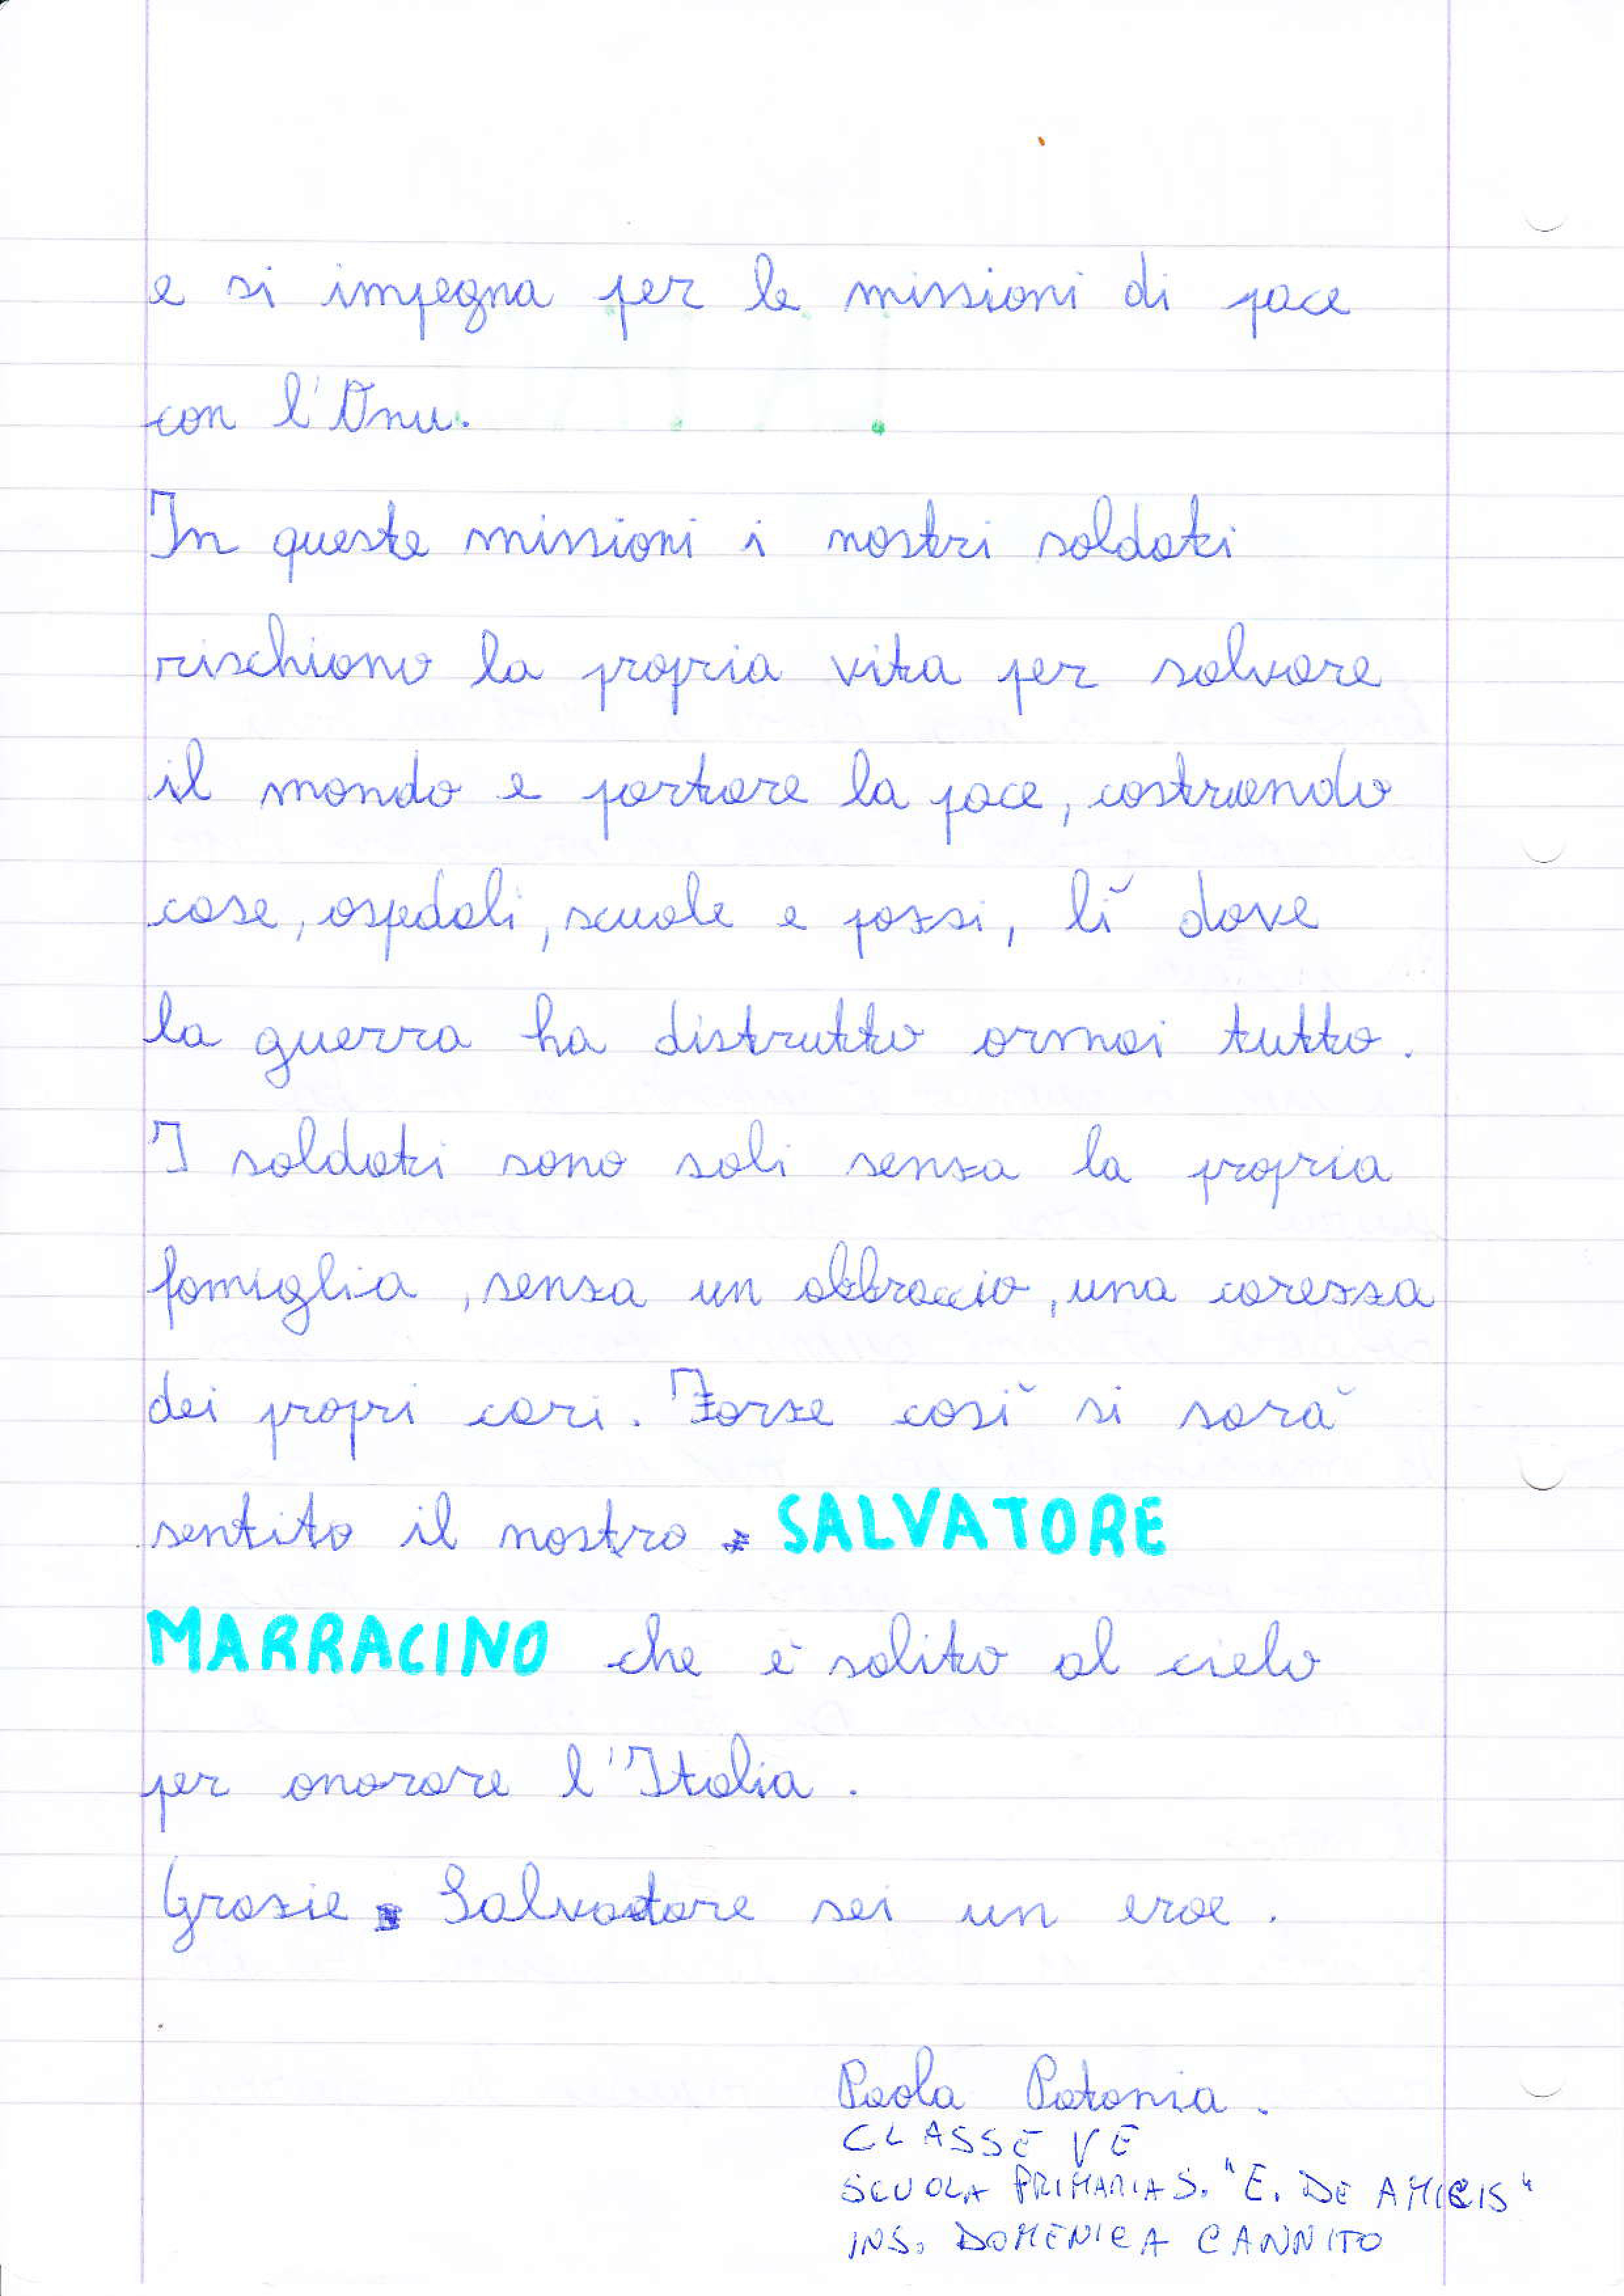 e si impegna per le missioni di pace
con l'Onu.
In queste missioni i nostri soldati
rischiano la propria vita per salvare
il mondo e portare la pace, costruendo
case, ospedali, scuole e pozzi, lì dove
la guerra ha distrutto ormai tutto.
I soldati sono soli senza la propria
famiglia, senza un abbraccio, una carezza
dei propri cari. Forse così si sarà
sentito il nostro SALVATORE
MARRACINO che è salito al cielo
per onorare l'Italia.
Grazie Salvatore sei un eroe.
Paola Patonia.
CLASSE V E
SCUOLA PRIMARIA S. "E. DE AMICIS"
INS. DOMENICA CANNITO